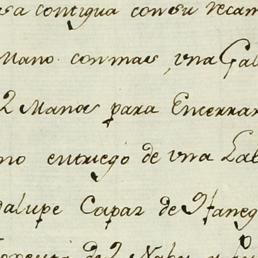 sa contigua con su recam
Mano con mas, vna Gal
2 Manos para Encerrar
no entriego de vna Lab
dalupe Capaz de 9 faneg